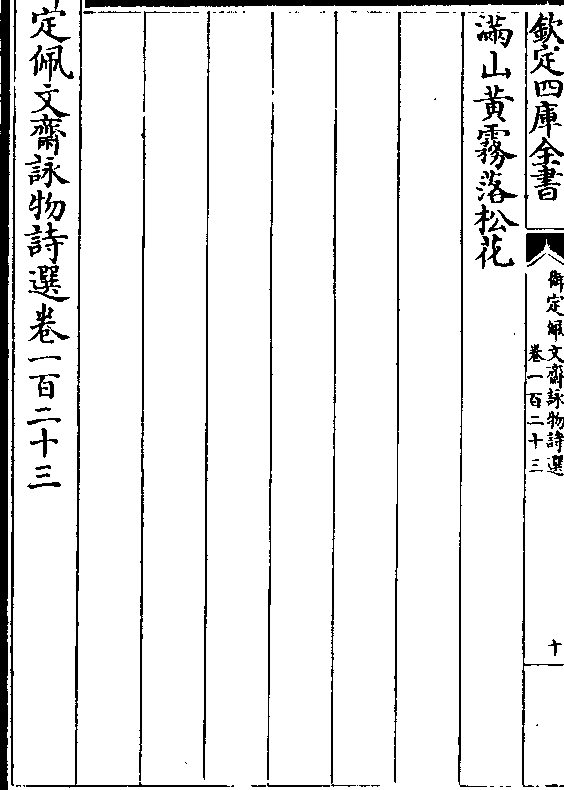 欽定四庫全書
御定佩文齋詠物詩選
卷一百二十三
十
滿山黃霧落松花
定佩文齋詠物詩選卷一百二十三